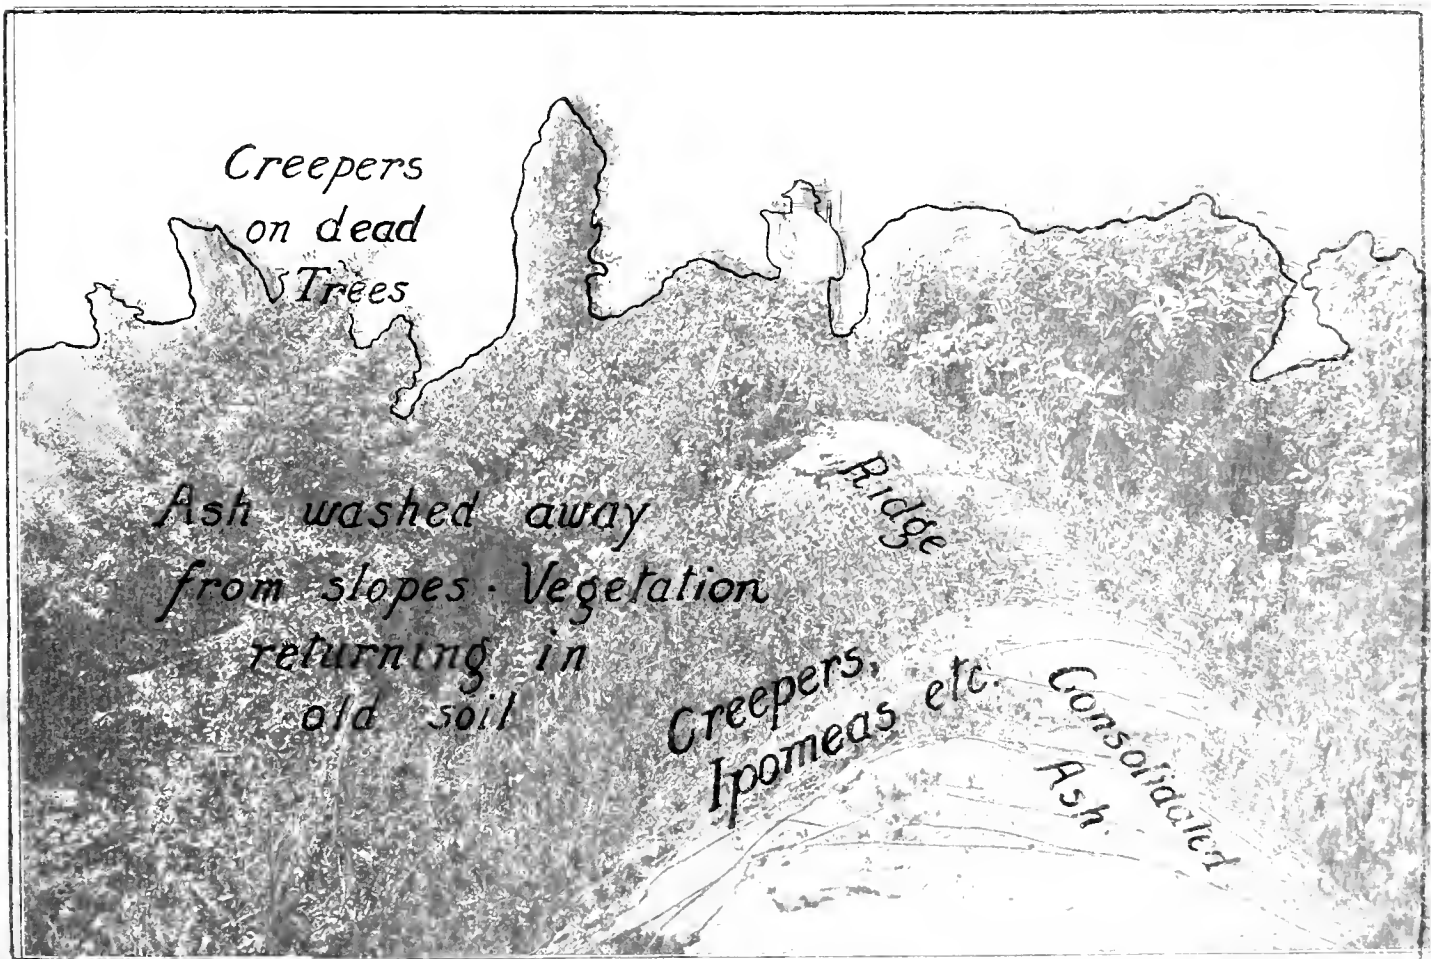 Creepers
on dead
Trees
Ridge
Ash washed away
from slopes. Vegetation
returning in
old soil
Creepers,
Ipomeas etc.
Consolidated
Ash.